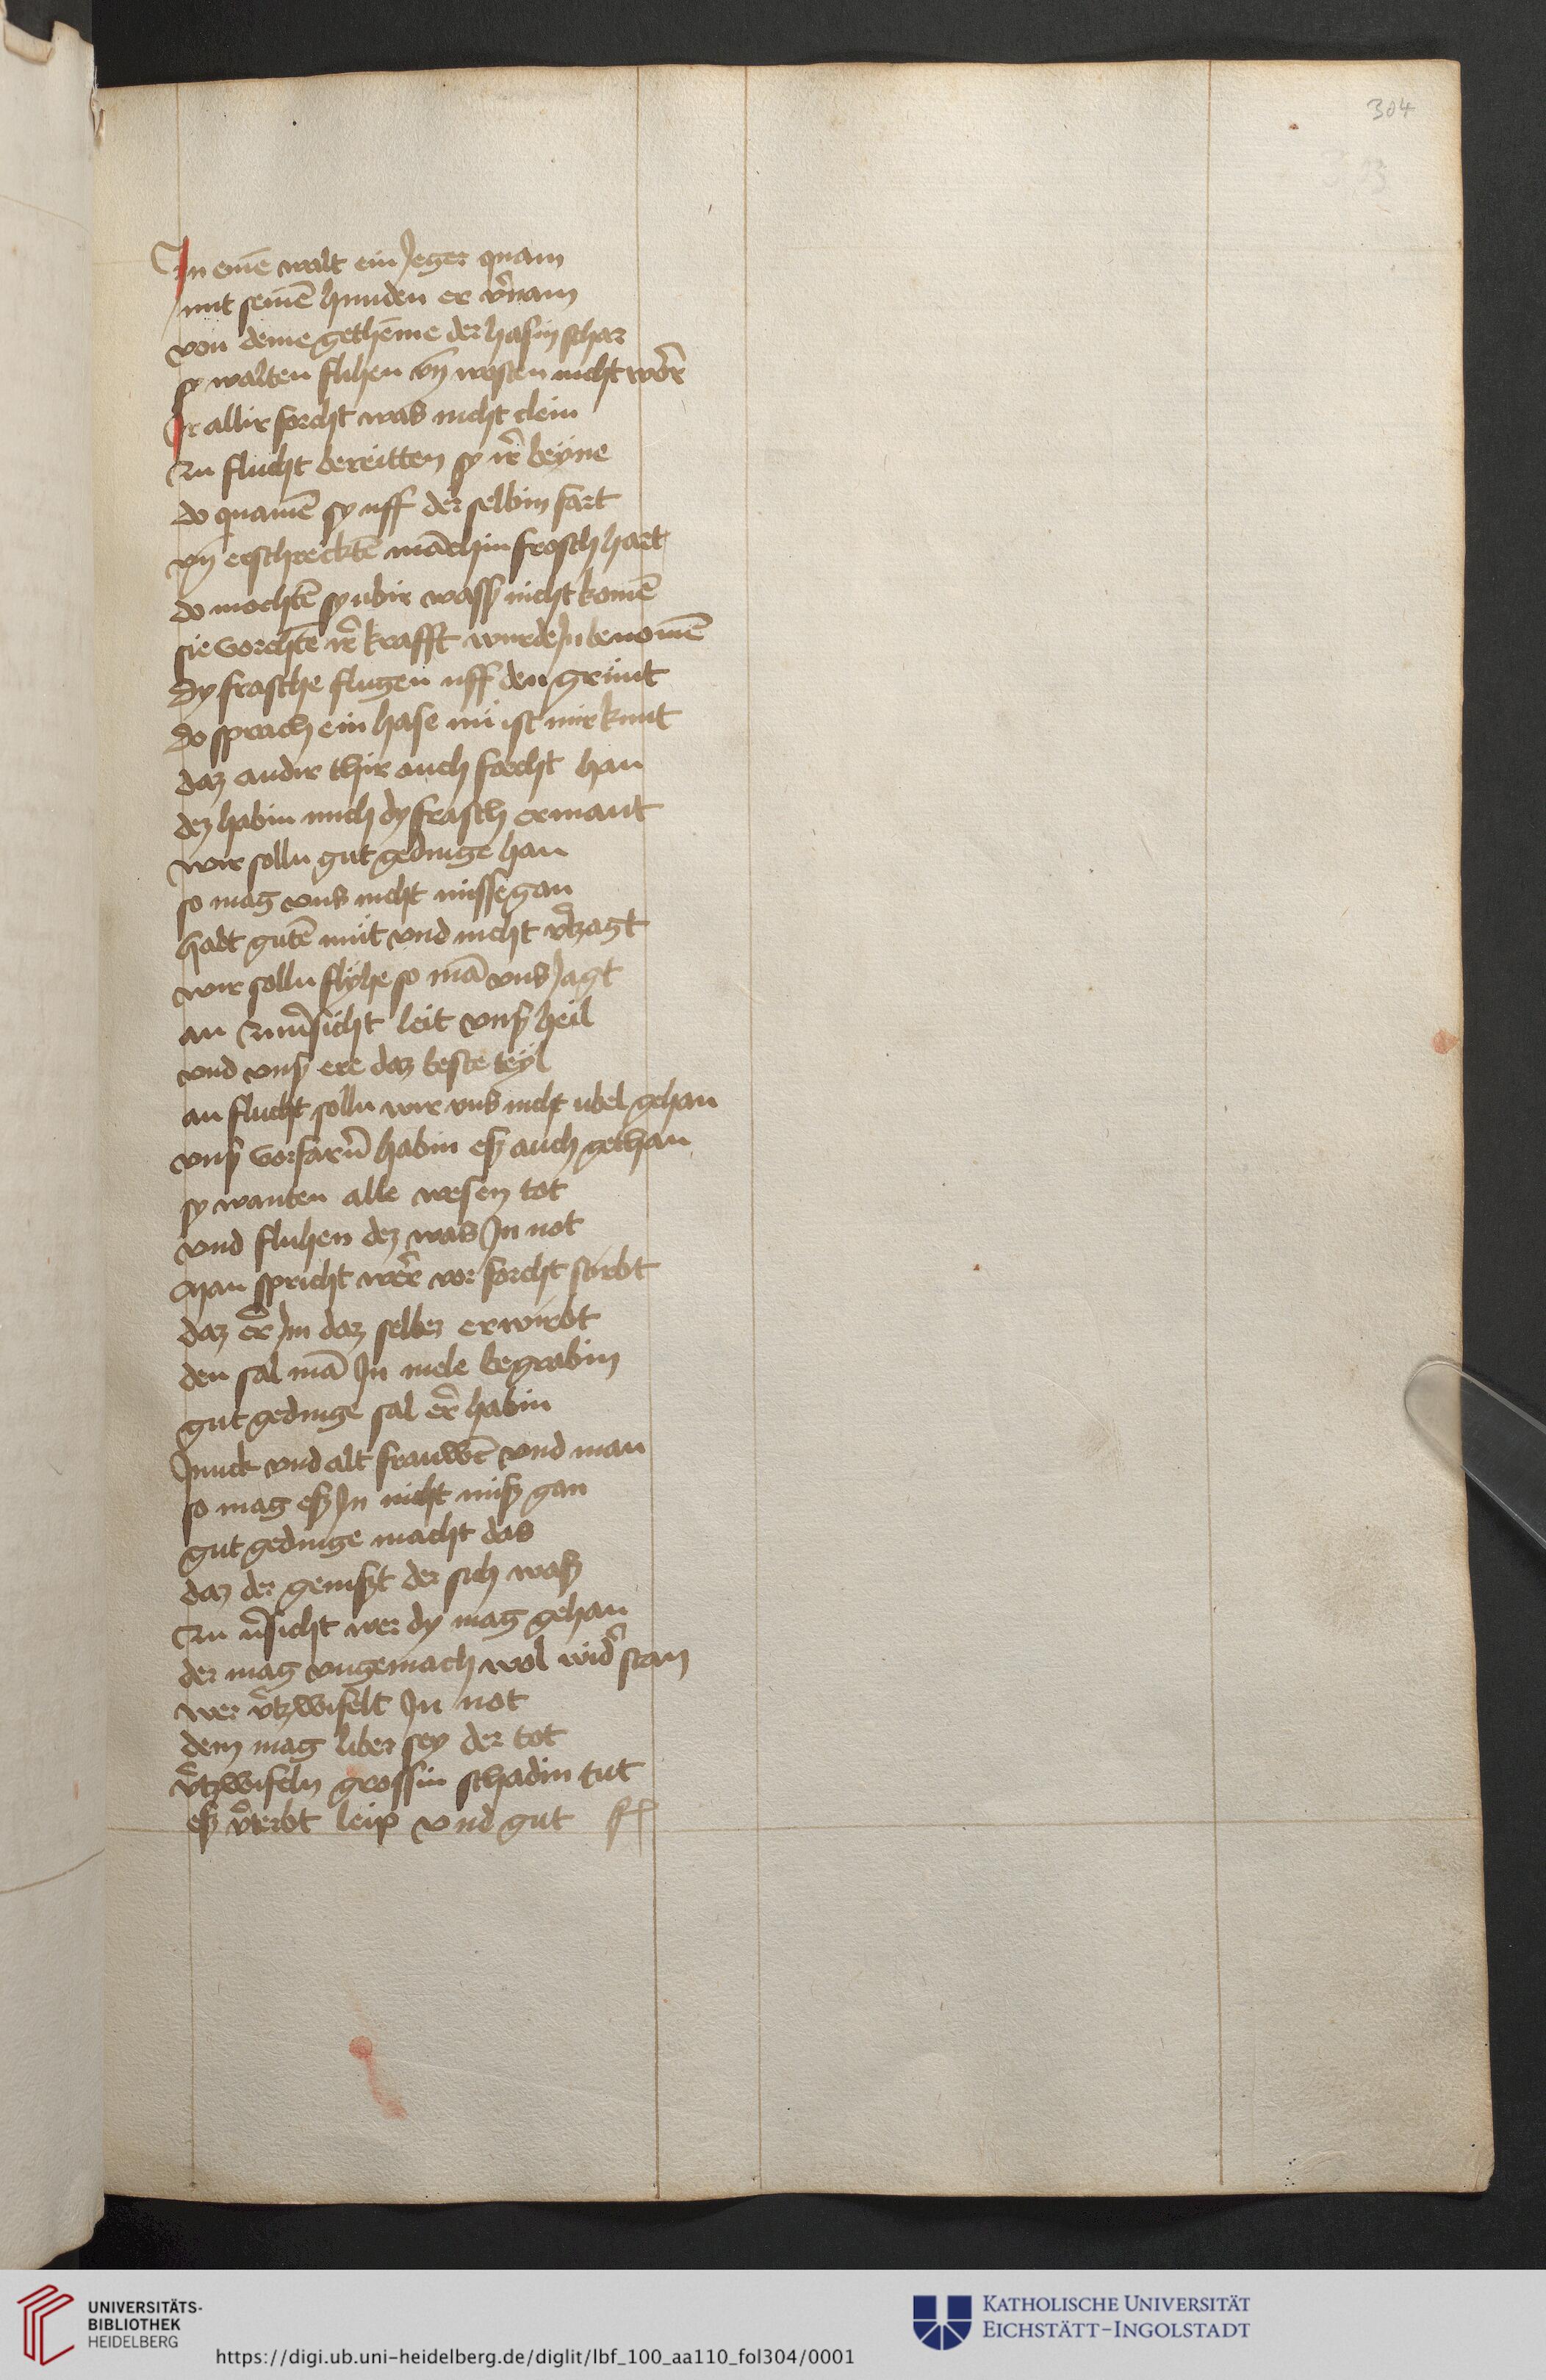 304
In eine͂ walt ein Jeger quam
mit seine͂ hunden er v͛nam
von deme gethe͂me der hasin schar
sy walten fluhen vn͂ westen nicht wo͛r
Ir allir forcht was nicht clein
Zu flucht bereitten sy ir͛ beyne
do quame͂ sy uff der selbin fart
vn͂ erschreckte͂ ma͂chin frosch hart
do mochte͂ sy ubir wass͛ nicht kome͂
sie vorchte͂ ir͛ krafft wurde In benome͂
Dy frosche flugen uff den grunt
do sprach ein hase nu ist mir kunt
daz andir thir auch forcht han
dez habin mich dy frosch ermant
wir solln gut gedinge han
so mag vns nicht missegan
habt gute͂ mut vnd nicht v͛tzagt
wir solln flyhe so ma͂ vns Jagt
an zuu͛sicht leit vns͛ heil
vnd vns͛ ere daz beste teyl
an flucht solln wir vns nicht ubel gehan
vns͛ vorfarn͛ habin esz auch gethan
sy wanten alle wesen tot
vnd fluhen dez was In not
Man spricht wer͛ vor forcht stirbt
daz er͛ Im daz selber erwirbt
den sal ma͂ In mele begrabin
gut gedinge sal er͛ habin
Junck vnd alt frauwe͂ vnd man
so mag esz In nicht misz gan
gut gedinge macht das
daz der geniszt der sich wasz
Zu u͛sicht wer dy mag gehan
der mag vngemach wol wid͛ stan
wer v͛tzwifelt In not
dem mag liber sey der tot
v͛tzwifeln grossin schadin tut
esz v͛terbt leip vnd gut
UNIVERSITÄTS-
BIBLIOTHEK
HEIDELBERG
https://digi.ub.uni-heidelberg.de/diglit/lbf_100_aa110_fol304/0001
KATHOLISCHE UNIVERSITÄT
EICHSTÄTT-INGOLSTADT